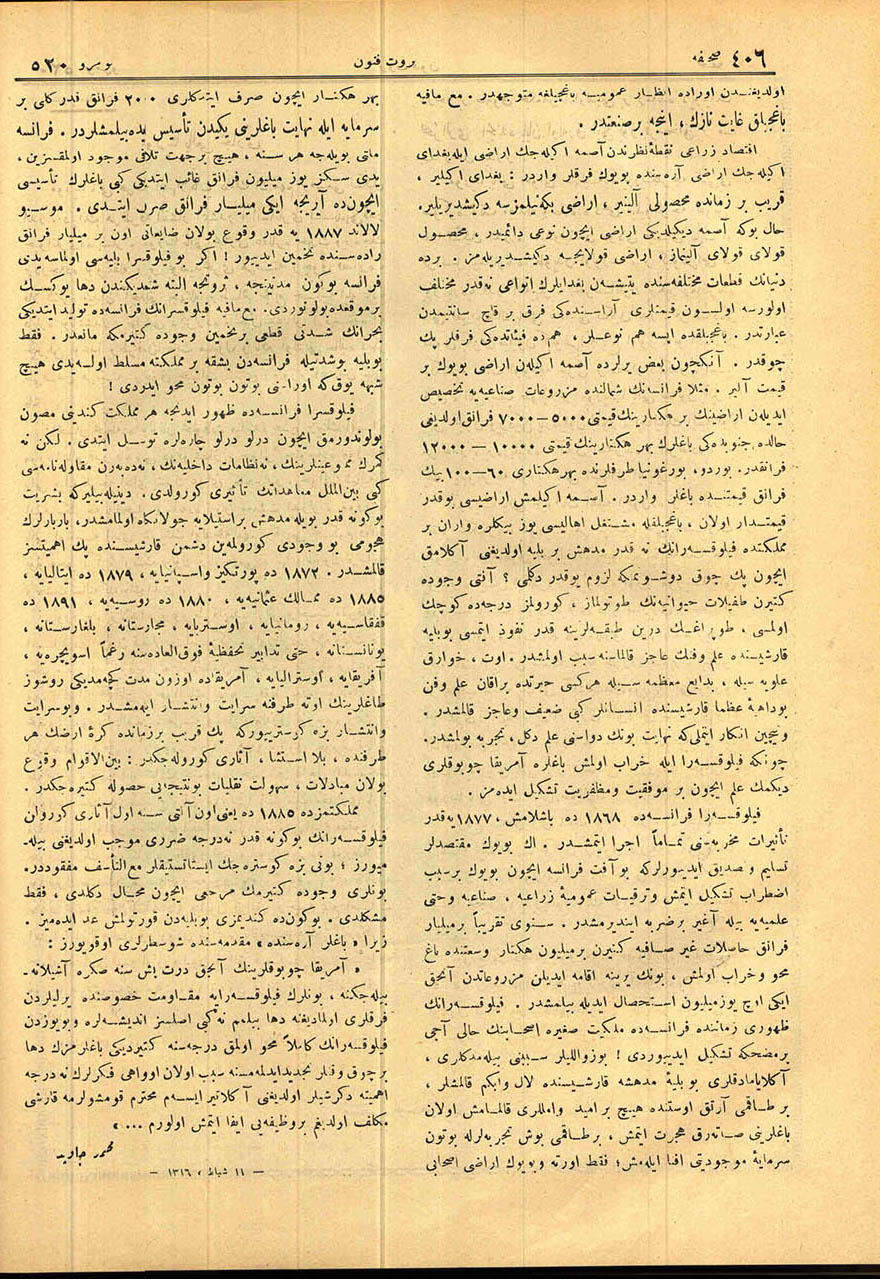 ٤٠٦ صحیفه
ثروت فنون
نومرو ٥٢٠
اولدیغندن اوراده انظـار عمومیـه باغجیلغه متوجهدر . مع مافیه
باغجیلق غایت نازك ، اینجه برصنعتدر .
اقتصاد زراعی نقطۀ نظرندن آصمه اكیله‌جك اراضی ایله بغدای
اكیله‌جك اراضی آره‌سنده بویوك فرقلر واردر : بغدای اكیلیر ،
قریب بر زمانده محصولی آلینیر ، اراضی بكه‌نیلمزسه دكیشدیریلیر.
حال بوكه آصمه دیكیلدیكی اراضی ایچون نوعی دائمیدر ، محصـول
قولای قولای آلینماز ، اراضی قولایجـه دكیشـدیریله‌مز . برده
دنیانك قطعات مختلفه‌سنده یتیشـن بغدایلرك انواعی نه‌قدر مختلف
اولورسه اولسـون قیمتلری آراسـنده‌كی فرق بر قاچ سانتیمدن
عبارتدر . باغجیلقده ایسه هم نوعـلر ، هم‌ده فیئاتده‌كی فرقلر پك
چوقدر . آنكچون بعض یرلرده آصمه اكیلن اراضی بویوك بر
قیمت آلیر . مثلا فرانسه‌نك شمالنده مزروعات صناعیه‌یه تخصیص
ایدیلن اراضینك بر هكتارینك قیمتی ٥٠٠٠ – ٧٠٠٠ فرانق اولدیغی
حالده جنوبده‌كی باغلرك بهر هكتارینك قیمتی ١٠٠٠٠ – ١٢٠٠٠
فرانقدر. بوردو ، بورغونیا طرفلرنده بهر هكتاری ٦٠–١٠٠ بیك
فرانق قیمتنـده باغلر واردر . آصـمه اكیلمش اراضیسی بوقدر
قیمتـدار اولان ، باغجیلقله مشـتغل اهالیسی یوز بیكلره واران بر
مملكتده فیلوقسـه‌رانك نه قدر مدهش بر بلیه اولدیغی آكلامق
ایچون پك چوق دوشـونمكه لزوم یوقدر دكلی ؟ آفتی وجوده
كتیرن طفیلات حیوانیه‌نك طوتولماز ، كورولمز درجه‌ده كوچك
اولمسی ، طوپراغـك درین طبقـه‌لرینه قدر نفوذ ایتمسی بوبلیه
قارشیسنده علم وفنك عاجز قالماسنه سبب اولمشدر . اوت ، خوارق
علویه سیله ، بدایع معظمه سـیله هركسی حیرتده براقان علم وفن
بوداهیۀ عظما قارشیسنده انسـانلر كبی ضعیف وعاجز قالمشدر .
ونیچین انكار ایتملی كه نهایت بونك دواسنی علم دكل ، تجربه بولمشدر.
چونكه فیلوقسـه‌را ایله خراب اولمش باغلره آمریقا چوبوقلری
دیكمك علم ایچون بر موفقیت ومظفریت تشكیل ایده‌مز .
فیلوقسـه‌را فرانسـه‌ده ١٨٦٨ ده باشلامش ، ١٨٧٧ یه‌قدر
تأثیرات مخربه‌سنی تمـاماً اجرا ایتمشـدر . اك بویوك مقتصدلر
تسلیم و تصدیق ایدییورلركه بو آفت فرانسه ایچون بویوك برسبب
اضطراب تشكیل ایتمش وترقیـات عمومیۀ زراعیه ، صناعیه وحتی
علمیه‌یه بیله آغیر برضربه ایندیرمشدر . سنوی تقریباً برملیار
فرانق حاصلات غیر صـافیه كتیرن برملیون هكتار وسعتنده باغ
محو وخراب اولمش ، بونك یرینه اقامه ایدیلن مزروعاتدن آنجق
ایكی اوچ یوز ملیون استحصال ایدیله بیلمشدر . فیلوقسـه‌رانك
ظهوری زماننده فرانسـه‌ده ملكیت صغیره اصحابنك حالی آجی
برمضحكه تشكیل ایدییوردی ! بوزواللیلر سـببنی بیله‌مدكلری ،
آكلایامادقلری بوبلیۀ مدهشه قارشیسنده لال وابكم قالمشلر ،
بر طـاقمی آرتق اوستنده هیچ بر امید واملـلری قالمـامش اولان
باغلرینی صـاته‌رق هجرت ایتمش ، بر طـاقمی بوش تجربه‌لرله بوتون
سرمایۀ موجودیتی افنا ایله‌مش؛ فقط اورته وبویوك اراضی اصحابی
بهر هكتـار ایچون صرف ایتدكلری ٢٠٠٠ فرانق قدر كلی بر
سرمایه ایله نهایت باغلرینی یكیدن تأسیس ایده‌بیلمشلردر. فرانسه
ملتی بویله‌جه هر سـنه ، هیـچ بر جهت تلافی موجود اولمقسزین ،
یدی سـكز یوز میلیون فرانق غائب ایتدیكی كبی باغلرك تأسیسی
ایچون‌ده آیریجه ایكی میلیـار فرانق صرف ایتـدی . موسـیو
لالاند ١٨٨٧ یه قدر وقوع بولان ضایعاتی اون بر میلیار فرانق
راده‌سـنده تخمین ایدییور ! اكر بو فیلوقسرا بلیه‌سی اولماسه‌یدی
فرانسه بوكون مدنیتجه ، ثروتجه البته شمدیكندن دها یوكسـك
برموقعده بولونوردی. مع مافیه فیلوقسرانك فرانسه‌ده تولید ایتدیكی
بحرانك شـدتی قطعی برتخمین وجوده كتیرمكه مانعدر. فقط
بوبلیه بوشدتیله فرانسه‌دن بشقه بر مملكته مسلط اولسـه‌یدی هیـچ
شبهه یوق‌كه اوراسنی بوتون بوتون محو ایدردی !
فیلوقسرا فرانسـه‌ده ظهور ایدنجه هر مملكت كندینی مصون
بولوندورمق ایچون درلو درلو چاره‌لره توسـل ایتدی . لكن نه
كمرك ممنوعیتلرینك ، نه نظامات داخلیه‌نك ، نه‌ده‌برن مقاوله‌نامه‌سی
كبی بین‌الملل معاهداتك تأثیری كورولدی . دینیله‌بیلیركه بشریت
بوكونه قدر بویله مدهش بر استیلایه جولانكاه اولمامشدر ، باربارلرك
هجومی بو وجودی كورولمه‌ین دشمن قارشیسـنده پك اهمیتسز
قالمشـدر . ١٨٧٢ ده پورتكیز واسـپانیایه ، ١٨٧٩ ده ایتالیایه ،
١٨٨٥ ده ممـالك عثمانیه‌یه ، ١٨٨٠ ده روسـیه‌یه ، ١٨٩١ ده
قفقاسـیه‌یه ، رومانیایه ، اوستریایه ، مجارستانه ، بلغارسـتانه ،
یونانسـتانه ، حتی تدابیر تحفظیۀ فوق‌العاده‌سنه رغماً اسویچره‌یه ،
آفریقایه ، اوسترالیایه ، آمریقاده اوزون مدت كچه‌مدیكی روشوز
طاغلرینك اوته طرفنه سرایت وانتشـار ایله‌مشـدر . وبوسرایت
وانتشـار بزه كوسترییوركه پك قریب برزمانده كرۀ ارضك هر
طرفنده ، بلا اسـتثنا ، آثاری كوروله‌جكدر : بین‌الاقوام وقوع
بولان مبادلات ، سـهولت نقلیات بونتیجه‌یی حصوله كتیره‌جكدر .
مملكتمزده ١٨٨٥ ده یعنی اون آلتی سـنه اول آثاری كورولن
فیلوقسـه‌رانك بوكونه قدر نه‌درجه ضرری موجب اولدیغنی بیله‌ـ
میورز ؛ بونی بزه كوستره‌جك ایستاتستیقلر مع‌التأسـف مفقوددر.
بونلری وجوده كتیرمك مرحعی ایچون محـال دكلدی ، فقط
مشكلدی . بوكون‌ده كندیمزی بوبلیه‌دن قورتولمش عد ایده‌میز .
زیرا « باغلر آره‌سنده » مقدمه‌سنده شو سطرلری اوقویورز :
« آمریقا چوبوقلرینك آنجق درت بش سنه صكره آشیلانه‌ـ
بیله‌جكنه ، بونلرك فیلوقسـه‌رایه مقـاومت خصوصنده یرلیلردن
فرقلری اولمادیغنه دها بیلمم نه كبی اصلسز اندیشـه‌لره وبویوزدن
فیلوقسـه‌رانك كاملاً محو اولمق درجه‌سنه كتیردیكی باغلرمزك دها
برچوق وقتلر تجدید ایدلمه‌مسنه سبب اولان اوواهی فكرلرك نه درجه
اهمیته دكرشیلر اولدیغنی آكلاتیر ایسـه‌م محترم قومشولرمه قارشی
مكلف اولدیغم بروظیفه‌یی ایفا ایتمش اولورم ... »
محمد جاوید
— ١١ شباط ، ١٣١٦ —